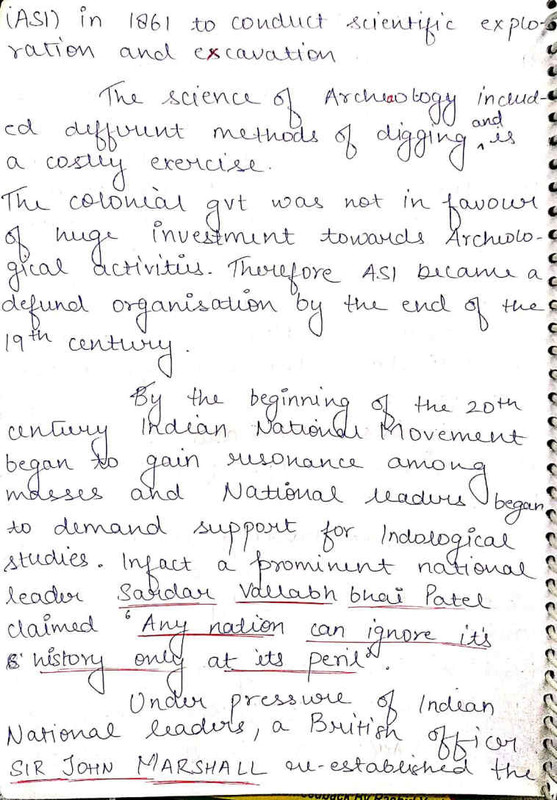 (ASI) in 1861 to conduct scientific explo-
ration and excavation
The science of Archaology includ-
ed different methods of digging, and is
a costly exercise.
The colonial gvt was not in favour
of huge investment towards Archeolo-
gical activities. Therefore ASI became a
defund organisation by the end of the
19th century.
By the beginning of the 20th
century Indian National Movement
began to gain resonance among
masses and National leaders began
to demand support for Indological
studies. Infact a prominent national
leader Sardar Vallabh bhai Patel
claimed 'Any nation can ignore it's
history only at its peril'.
Under pressure of Indian
National leaders, a British officer
SIR JOHN MARSHALL re-established the